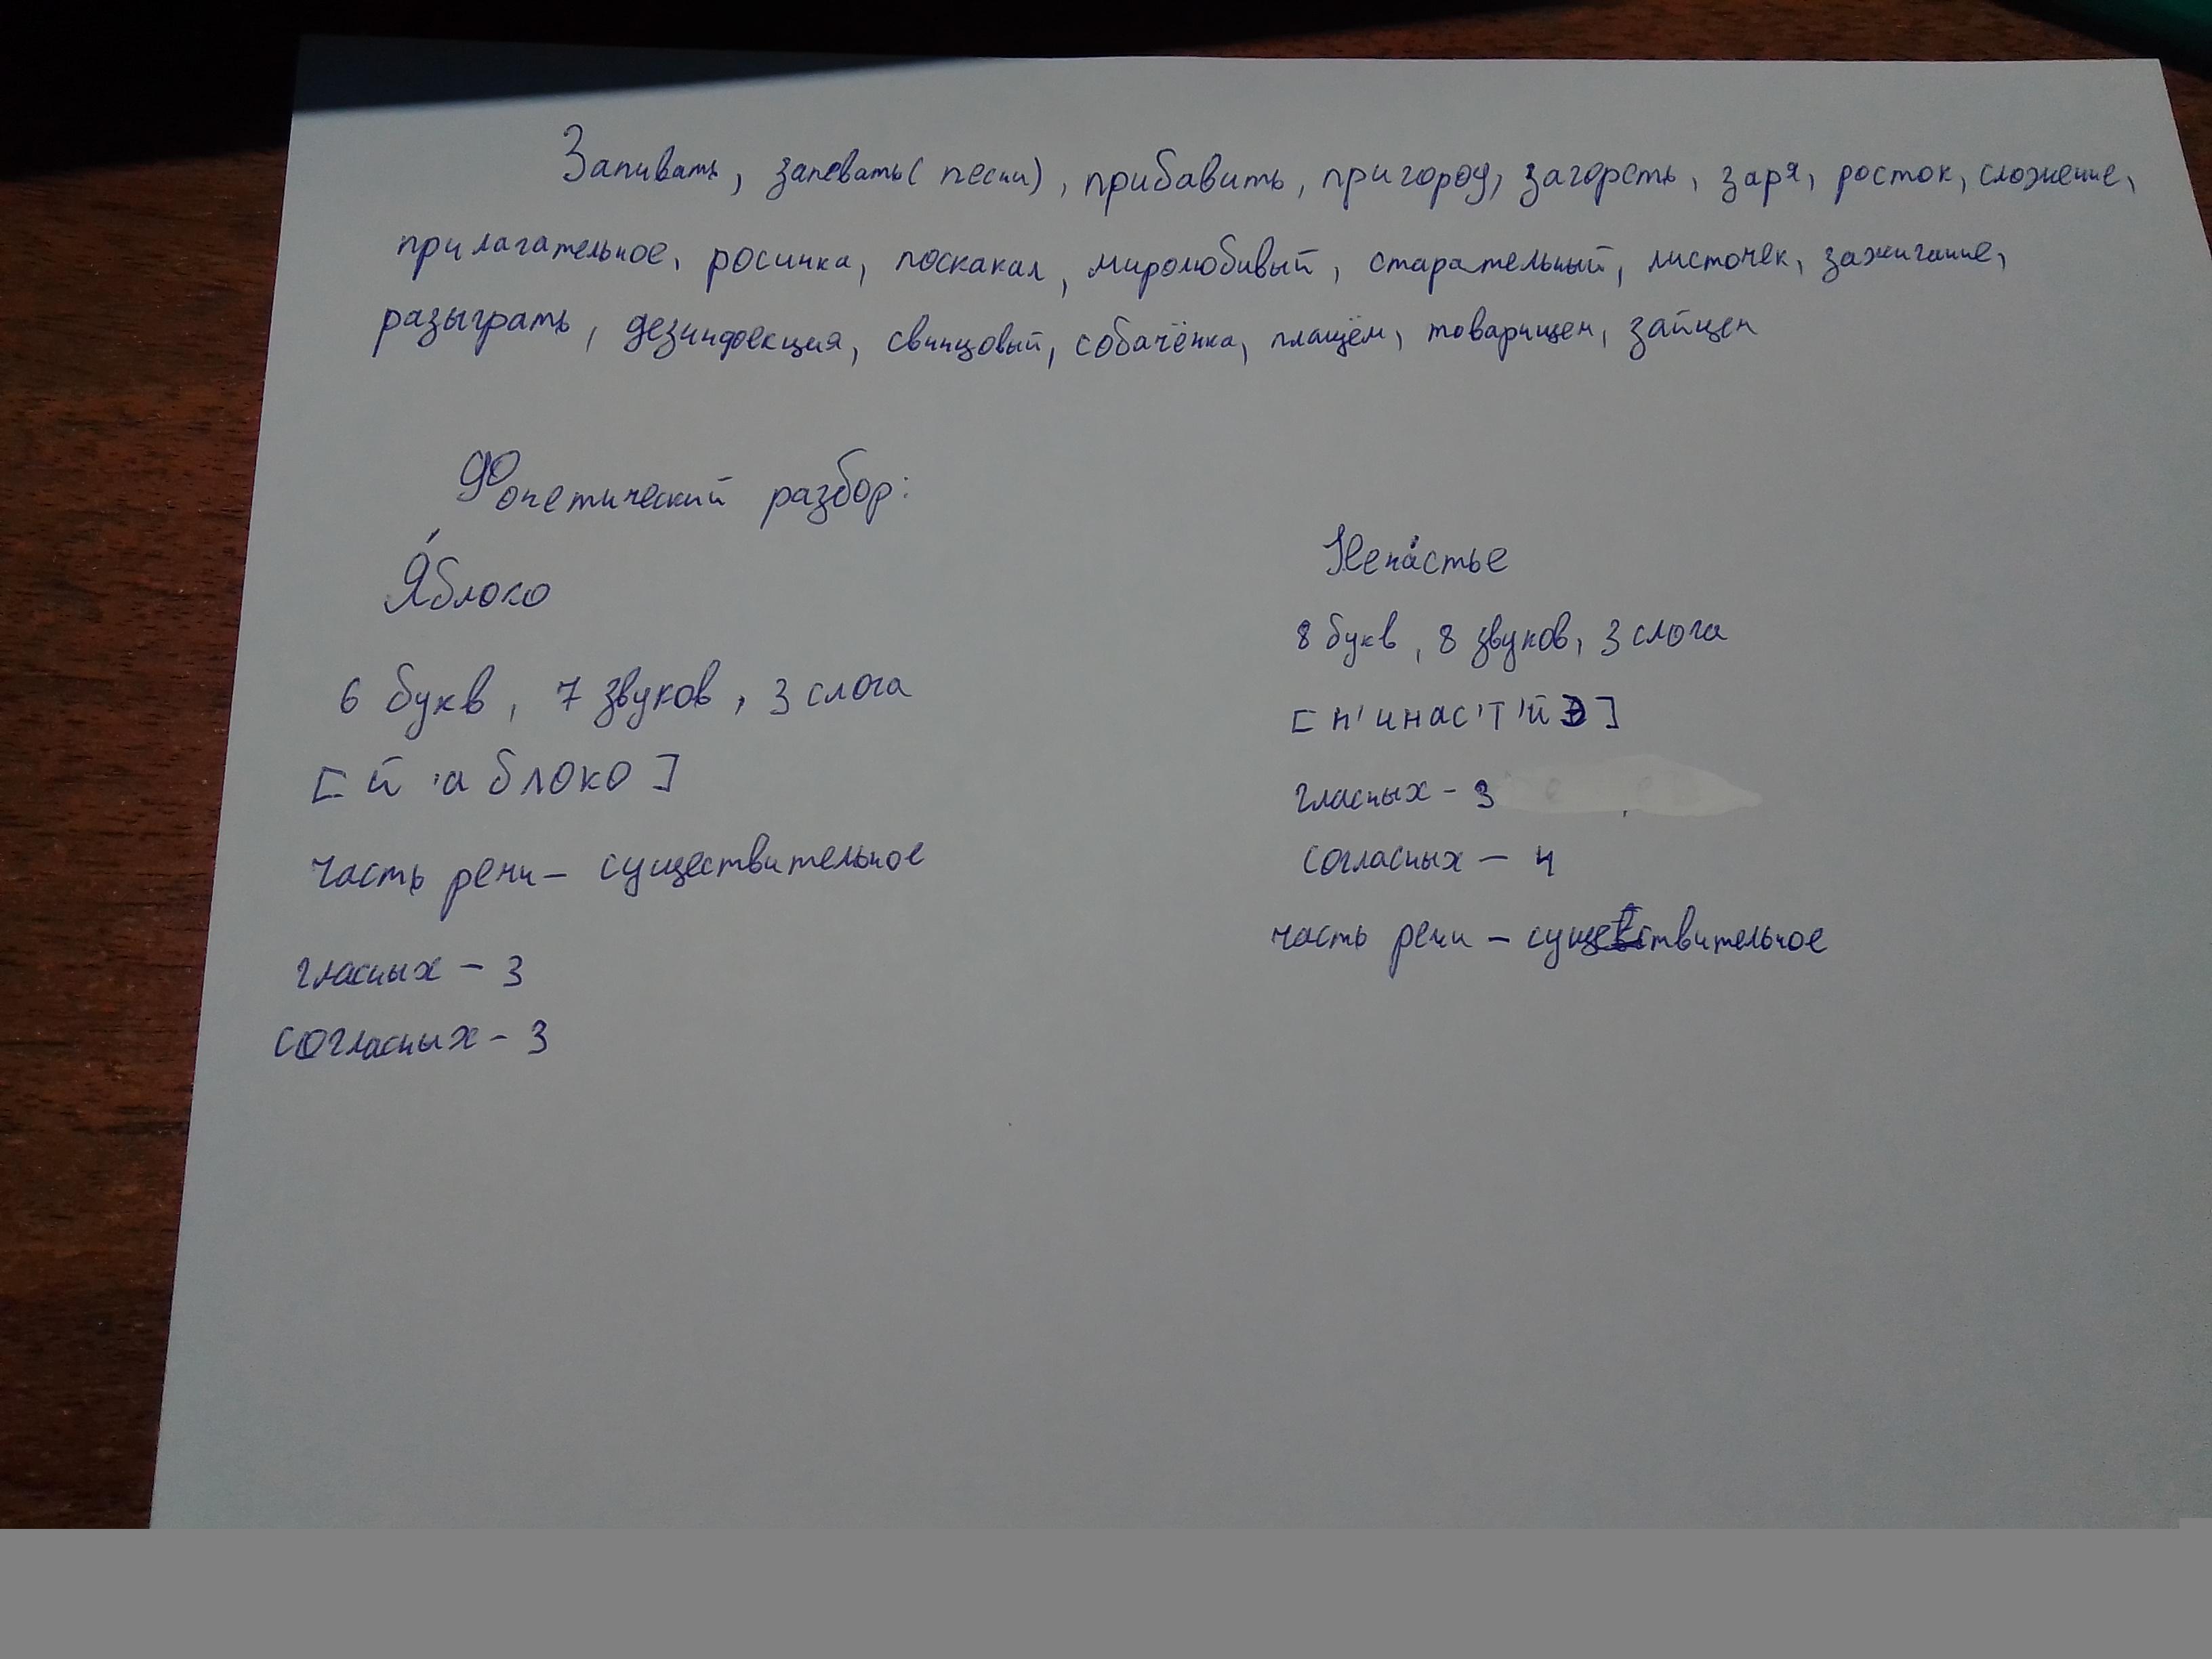 Запивать, запевать (песни), прибавить, пригород, загореть, заря, росток, сложение,
прилагательное, росинка, поскакал, миролюбивый, старательный, листочек, зажигание,
разыграть, дезинфекция, свинцовый, собачёнка, плащём, товарищем, зайцем
Фонетический разбор:
Я́блоко
6 букв, 7 звуков, 3 слога
[й'аблоко]
часть речи – существительное
гласных – 3
согласных – 3
Нена́стье
8 букв, 8 звуков, 3 слога
[н'инас'т'йэ]
гласных – 3
согласных – 4
часть речи – существительное